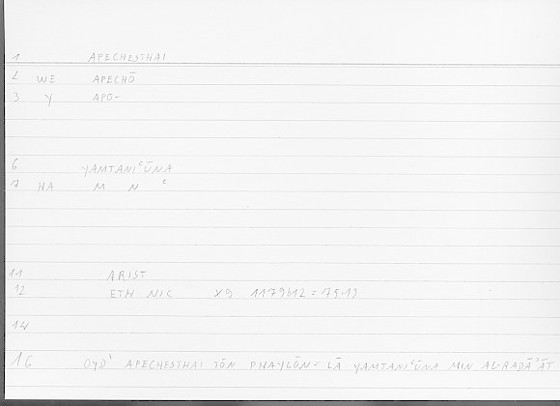 1 APECHESTHAI
2 WE APECHŌ
3 Y APO-
6 YAMTANIᶜŪNA
7 HA M N ᶜ
11 ARIST
12 ETH NIC X5 1179b12 = 75.13
14
16 APECHESTHAI TŌN PHAYLŌN = LĀ YAMTANIᶜŪNA MIN AL-RADĀʾĀT